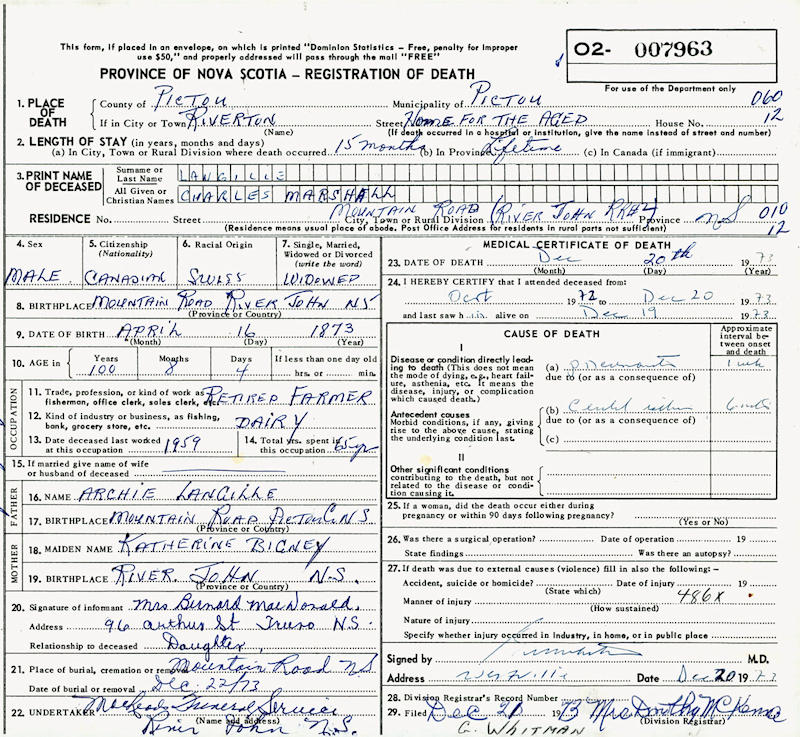 This form, if placed in an envelope, on which is printed "Dominion Statistics – Free, penalty for improper
use $50," and properly addressed will pass through the mail "FREE"
PROVINCE OF NOVA SCOTIA – REGISTRATION OF DEATH
02- 007963
For use of the Department only
1. PLACE OF DEATH
County of PICTOU Municipality of PICTOU 060
If in City or Town RIVERTON Street HOME FOR THE AGED House No. 12
(Name) (If death occurred in a hospital or institution, give the name instead of street and number)
2. LENGTH OF STAY (in years, months and days)
(a) In City, Town or Rural Division where death occurred 15 months (b) In Province Lifetime (c) In Canada (if immigrant)
3. PRINT NAME OF DECEASED
Surname or Last Name LANGILLE
All Given or Christian Names CHARLES MARSHALL
RESIDENCE No. Street MOUNTAIN ROAD (RIVER JOHN RR#2) City, Town or Rural Division Province NS 010
(Residence means usual place of abode. Post Office Address for residents in rural parts not sufficient) 12
4. Sex 5. Citizenship (Nationality) 6. Racial Origin 7. Single, Married, Widowed or Divorced (write the word)
MALE CANADIAN SWISS WIDOWED
8. BIRTHPLACE MOUNTAIN ROAD RIVER JOHN NS
(Province or Country)
9. DATE OF BIRTH APRIL 16 1873
(Month) (Day) (Year)
10. AGE in Years Months Days If less than one day old
100 8 4 hrs. or min.
OCCUPATION
11. Trade, profession, or kind of work as fisherman, office clerk, soles clerk, etc. RETIRED FARMER
12. Kind of industry or business, as fishing, bank, grocery store, etc. DAIRY
13. Date deceased last worked at this occupation 1959 14. Total yrs. spent in this occupation 65 yr
15. If married give name of wife or husband of deceased
FATHER
16. NAME ARCHIE LANGILLE
17. BIRTHPLACE MOUNTAIN ROAD PICTOU C. NS
(Province or Country)
MOTHER
18. MAIDEN NAME KATHERINE BIGNEY
19. BIRTHPLACE RIVER JOHN N.S.
(Province or Country)
20. Signature of informant Mrs Bernard MacDonald.
Address 96 Arthur St Truro NS.
Relationship to deceased Daughter,
21. Place of burial, cremation or removal Mountain Road NS
Date of burial or removal Dec. 22/73
22. UNDERTAKER Funeral Service
(Name and address)
River John N.S.
MEDICAL CERTIFICATE OF DEATH
23. DATE OF DEATH Dec 20th 1973
(Month) (Day) (Year)
24. I HEREBY CERTIFY that I attended deceased from:
Oct 1972 to Dec 20 1973
and last saw him alive on Dec 19 1973
CAUSE OF DEATH
Approximate interval between onset and death
I
Disease or condition directly leading to death (This does not mean the mode of dying, e.g., heart failure, asthenia, etc. It means the disease, injury, or complication which caused death.)
(a) 1 wk
due to (or as a consequence of)
Antecedent causes
Morbid conditions, if any, giving rise to the above cause, stating the underlying condition last.
(b)
due to (or as a consequence of)
(c)
II
Other significant conditions
contributing to the death, but not related to the disease or condition causing it.
25. If a woman, did the death occur either during pregnancy or within 90 days following pregnancy?
(Yes or No)
26. Was there a surgical operation? Date of operation 19
State findings Was there an autopsy?
27. If death was due to external causes (violence) fill in also the following:–
Accident, suicide or homicide? Date of injury 19
(State which)
Manner of injury 486X
(How sustained)
Nature of injury
Specify whether injury occurred in industry, in home, or in public place
Signed by M.D.
Address Westville Date Dec 20 1973
28. Division Registrar's Record Number
29. Filed Dec 21 1973 Mrs Dorothy McKenzie
(Division Registrar)
G. WHITMAN